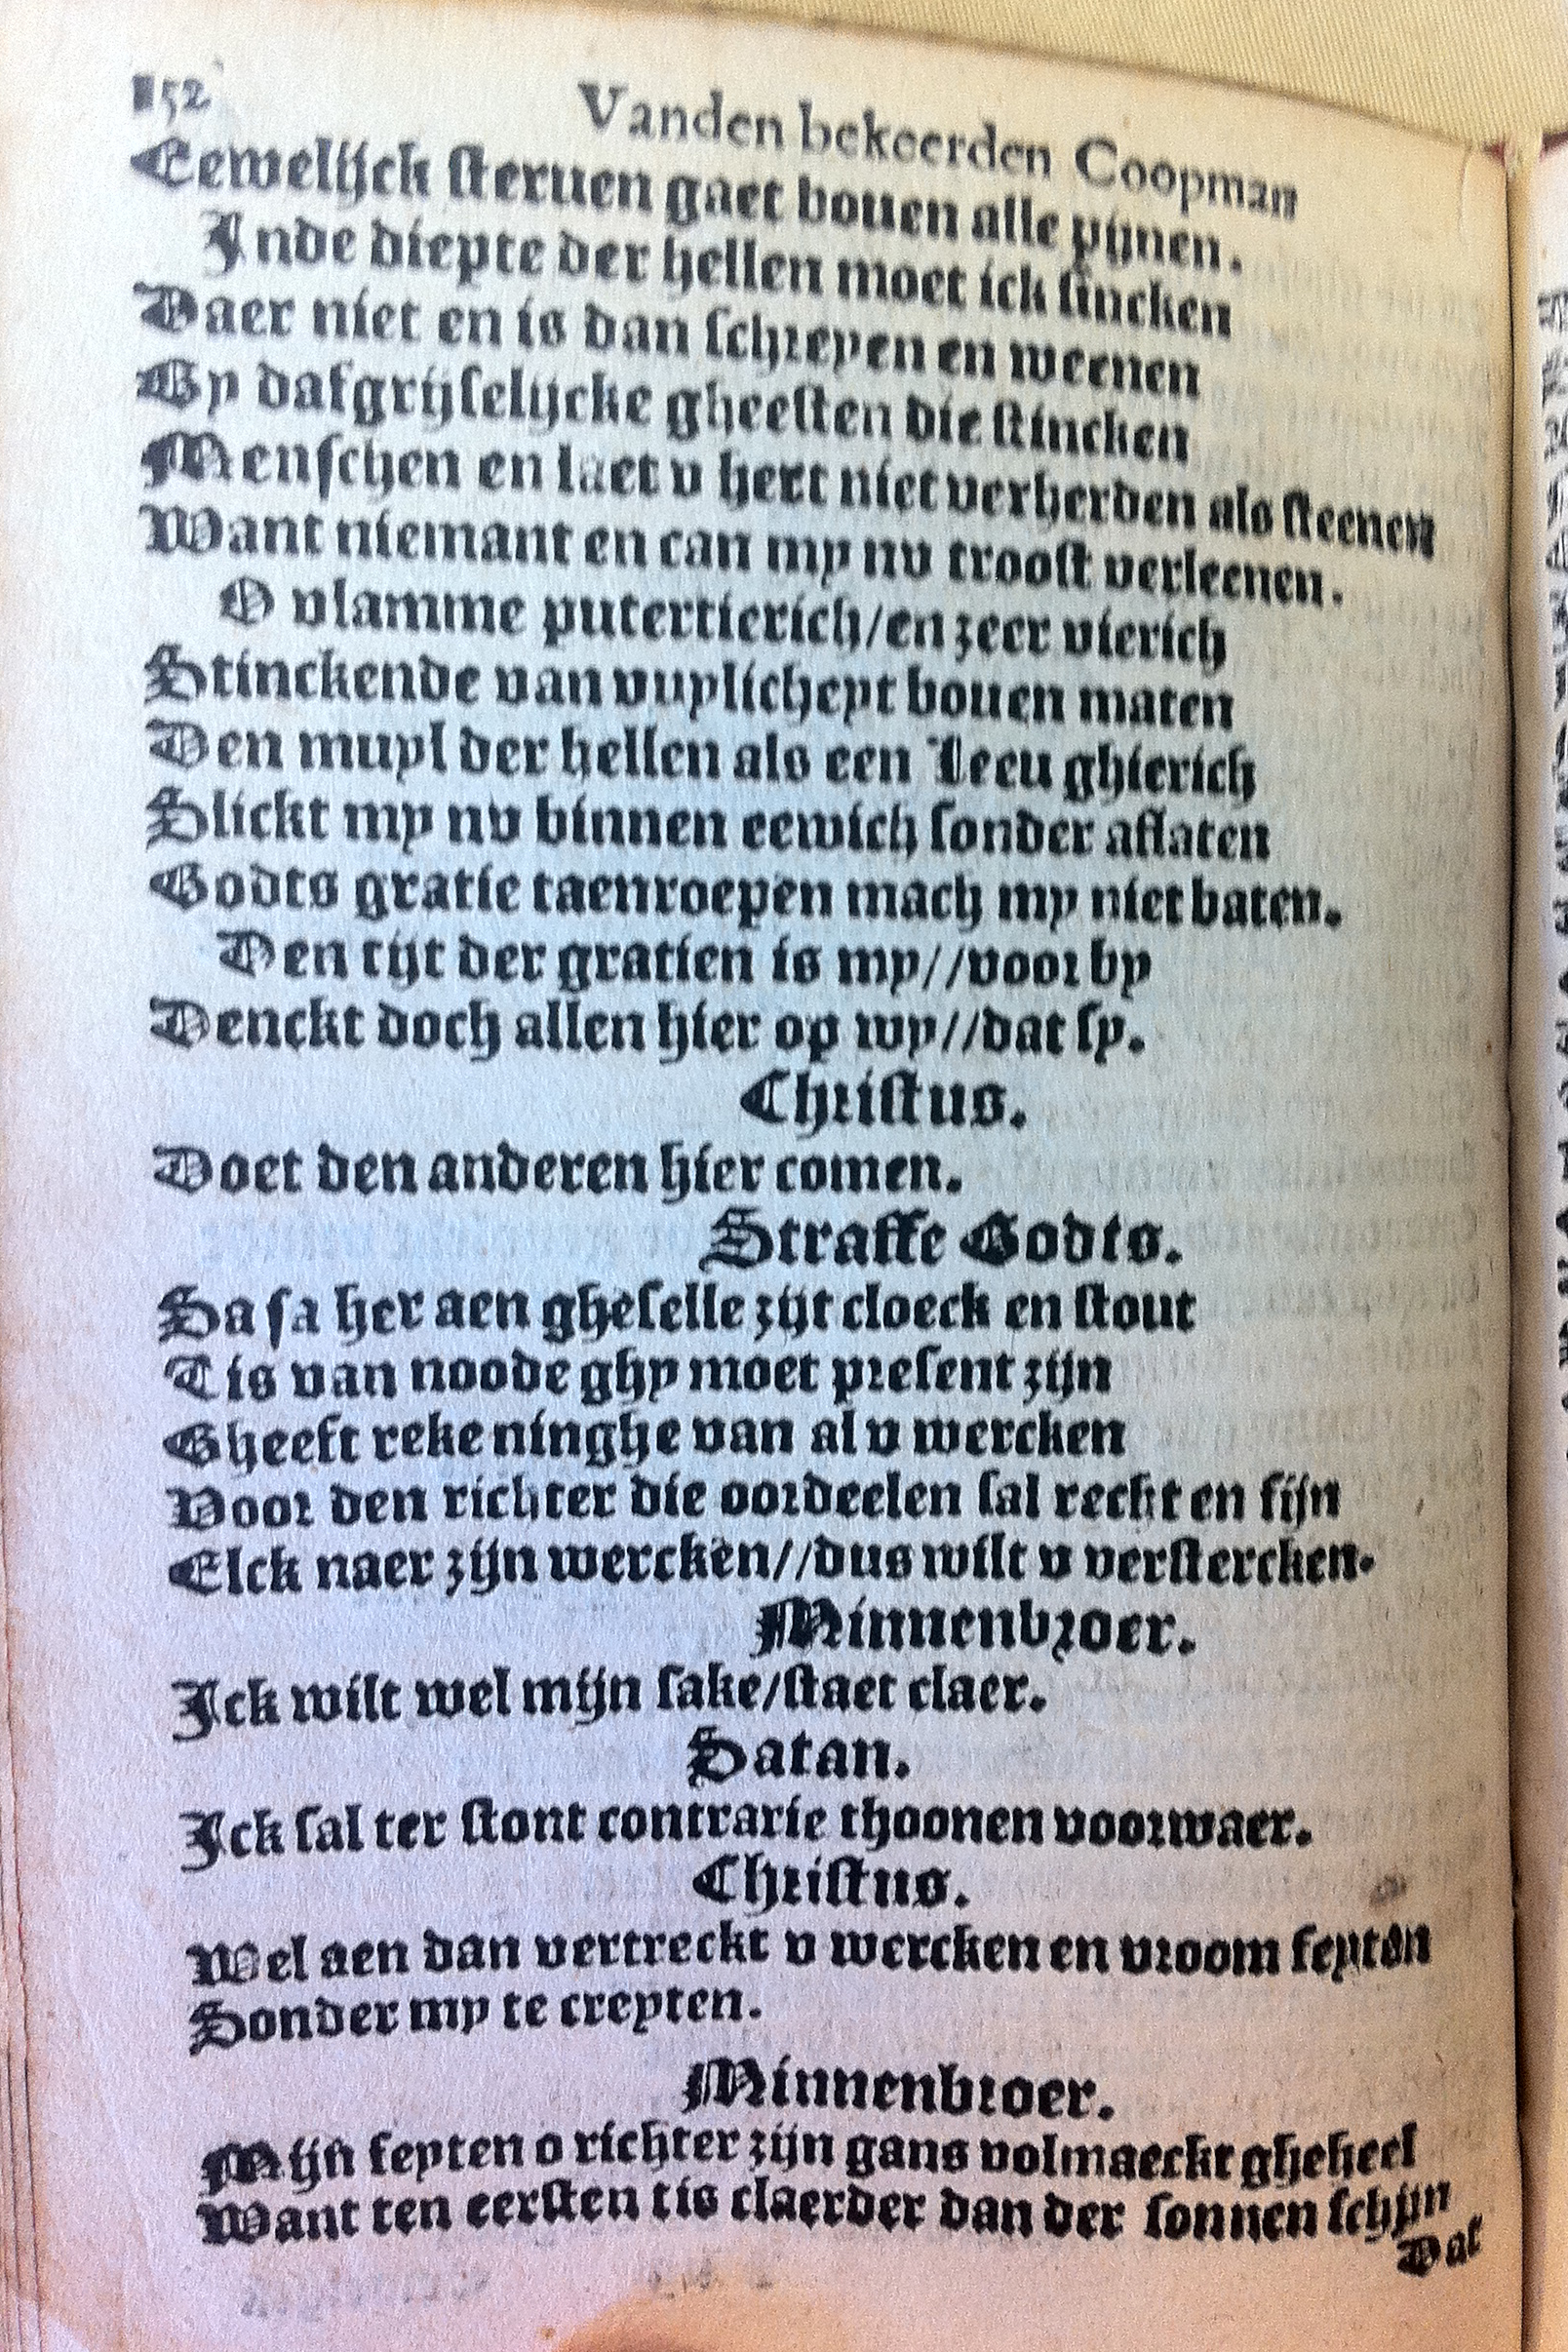 152 Vanden bekeerden Coopman
Eewelijck steruen gaet bouen alle pijnen.
Inde diepte der hellen moet ick sincken
Daer niet en is dan schreyen en weenen
Gy dafgrijselijcke gheesten die stincken
Menschen en laet v hert niet verherden als steenen
Want niemant en can my nv troost verleenen.
O vlamme putertierich/en zeer vierich
Stinckende van vuylicheyt bouen maten
Den muyl der hellen als een Leeu ghierich
Slickt my nv binnen eewich sonder aflaten
Godts gratie taenroepen mach my niet baten.
Den tijt der gratien is my//voor by
Denckt doch allen hier op wy//dat sy.
Christus.
Doet den anderen hier comen.
Straffe Godts.
Sa sa her aen gheselle zijt cloeck en stout
Tis van noode ghy moet present zijn
Gheeft rekeninghe van al v wercken
Voor den richter die oordeelen sal recht en fijn
Elck naer zijn wercken//dus wilt v verstercken.
Minnenbroer.
Ick wilt wel mijn sake/staet claer.
Satan.
Ick sal ter stont contrarie thoonen voorwaer.
Christus.
Wel aen dan vertreckt v wercken en vroom feyten
Sonder my te creyten.
Minnenbroer.
Mijn feyten o richter zijn gans volmaeckt gheheel
Want ten eersten tis claerder dan der sonnen schijn
Dat